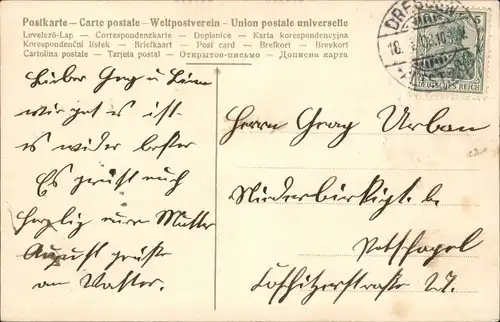 Postkarte – Carte postale – Weltpostverein – Union postale universelle
Levelező-Lap — Correspondenzkarte — Dopisnice — Karta korespondencyjna
Korespondenční lístek — Briefkaart — Post card — Brefkort — Brevkort
Cartolina postale — Tarjeta postal — Открытое-письмо — Дописна карта
DRESDEN
5
DEUTSCHES REICH
Lieber Georg u Lina
wie get es ist
es wider beser
Es grüst euch
herzlig eure Mutter
August grüste
an Vatter.
Herrn Georg Urban
Niederbirkigt b.
Potschapel
Coschützerstraße 27.